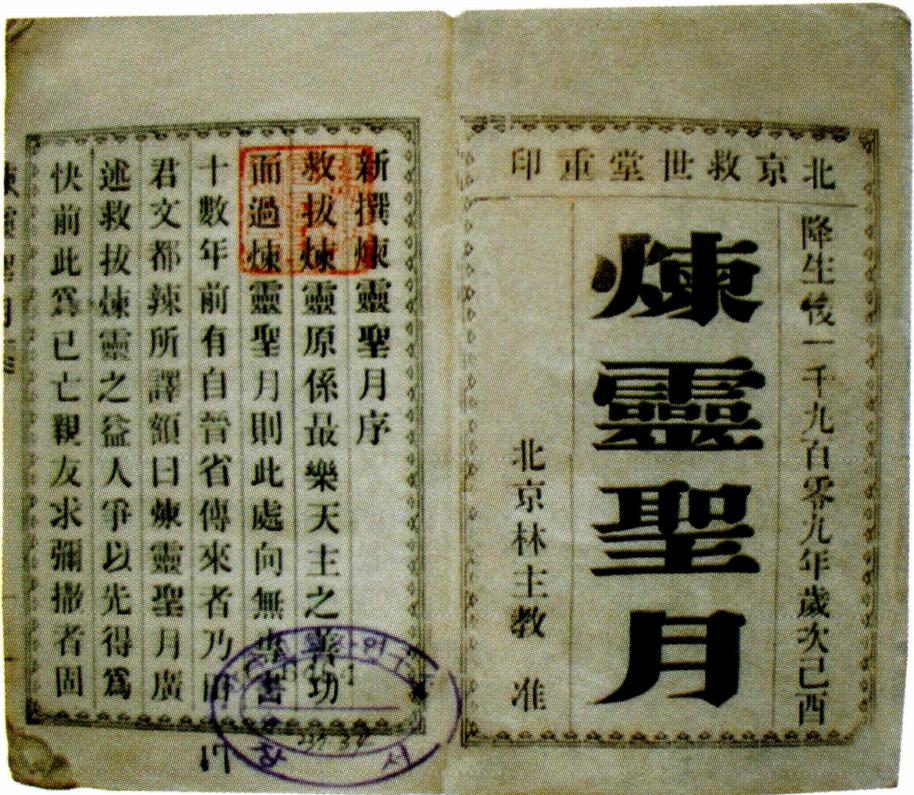 北京救世堂重印
降生後一千九百零九年歲次己酉
煉靈聖月
北京林主教 准
新撰煉靈聖月序
救拔煉靈原係最樂天主之善功
而過煉靈聖月則此處向無專書
十數年前有自晉省傳來者乃田
君文都辣所譯額曰煉靈聖月廣
述救拔煉靈之益人爭以先得爲
快前此爲已亡親友求彌撒者固
17